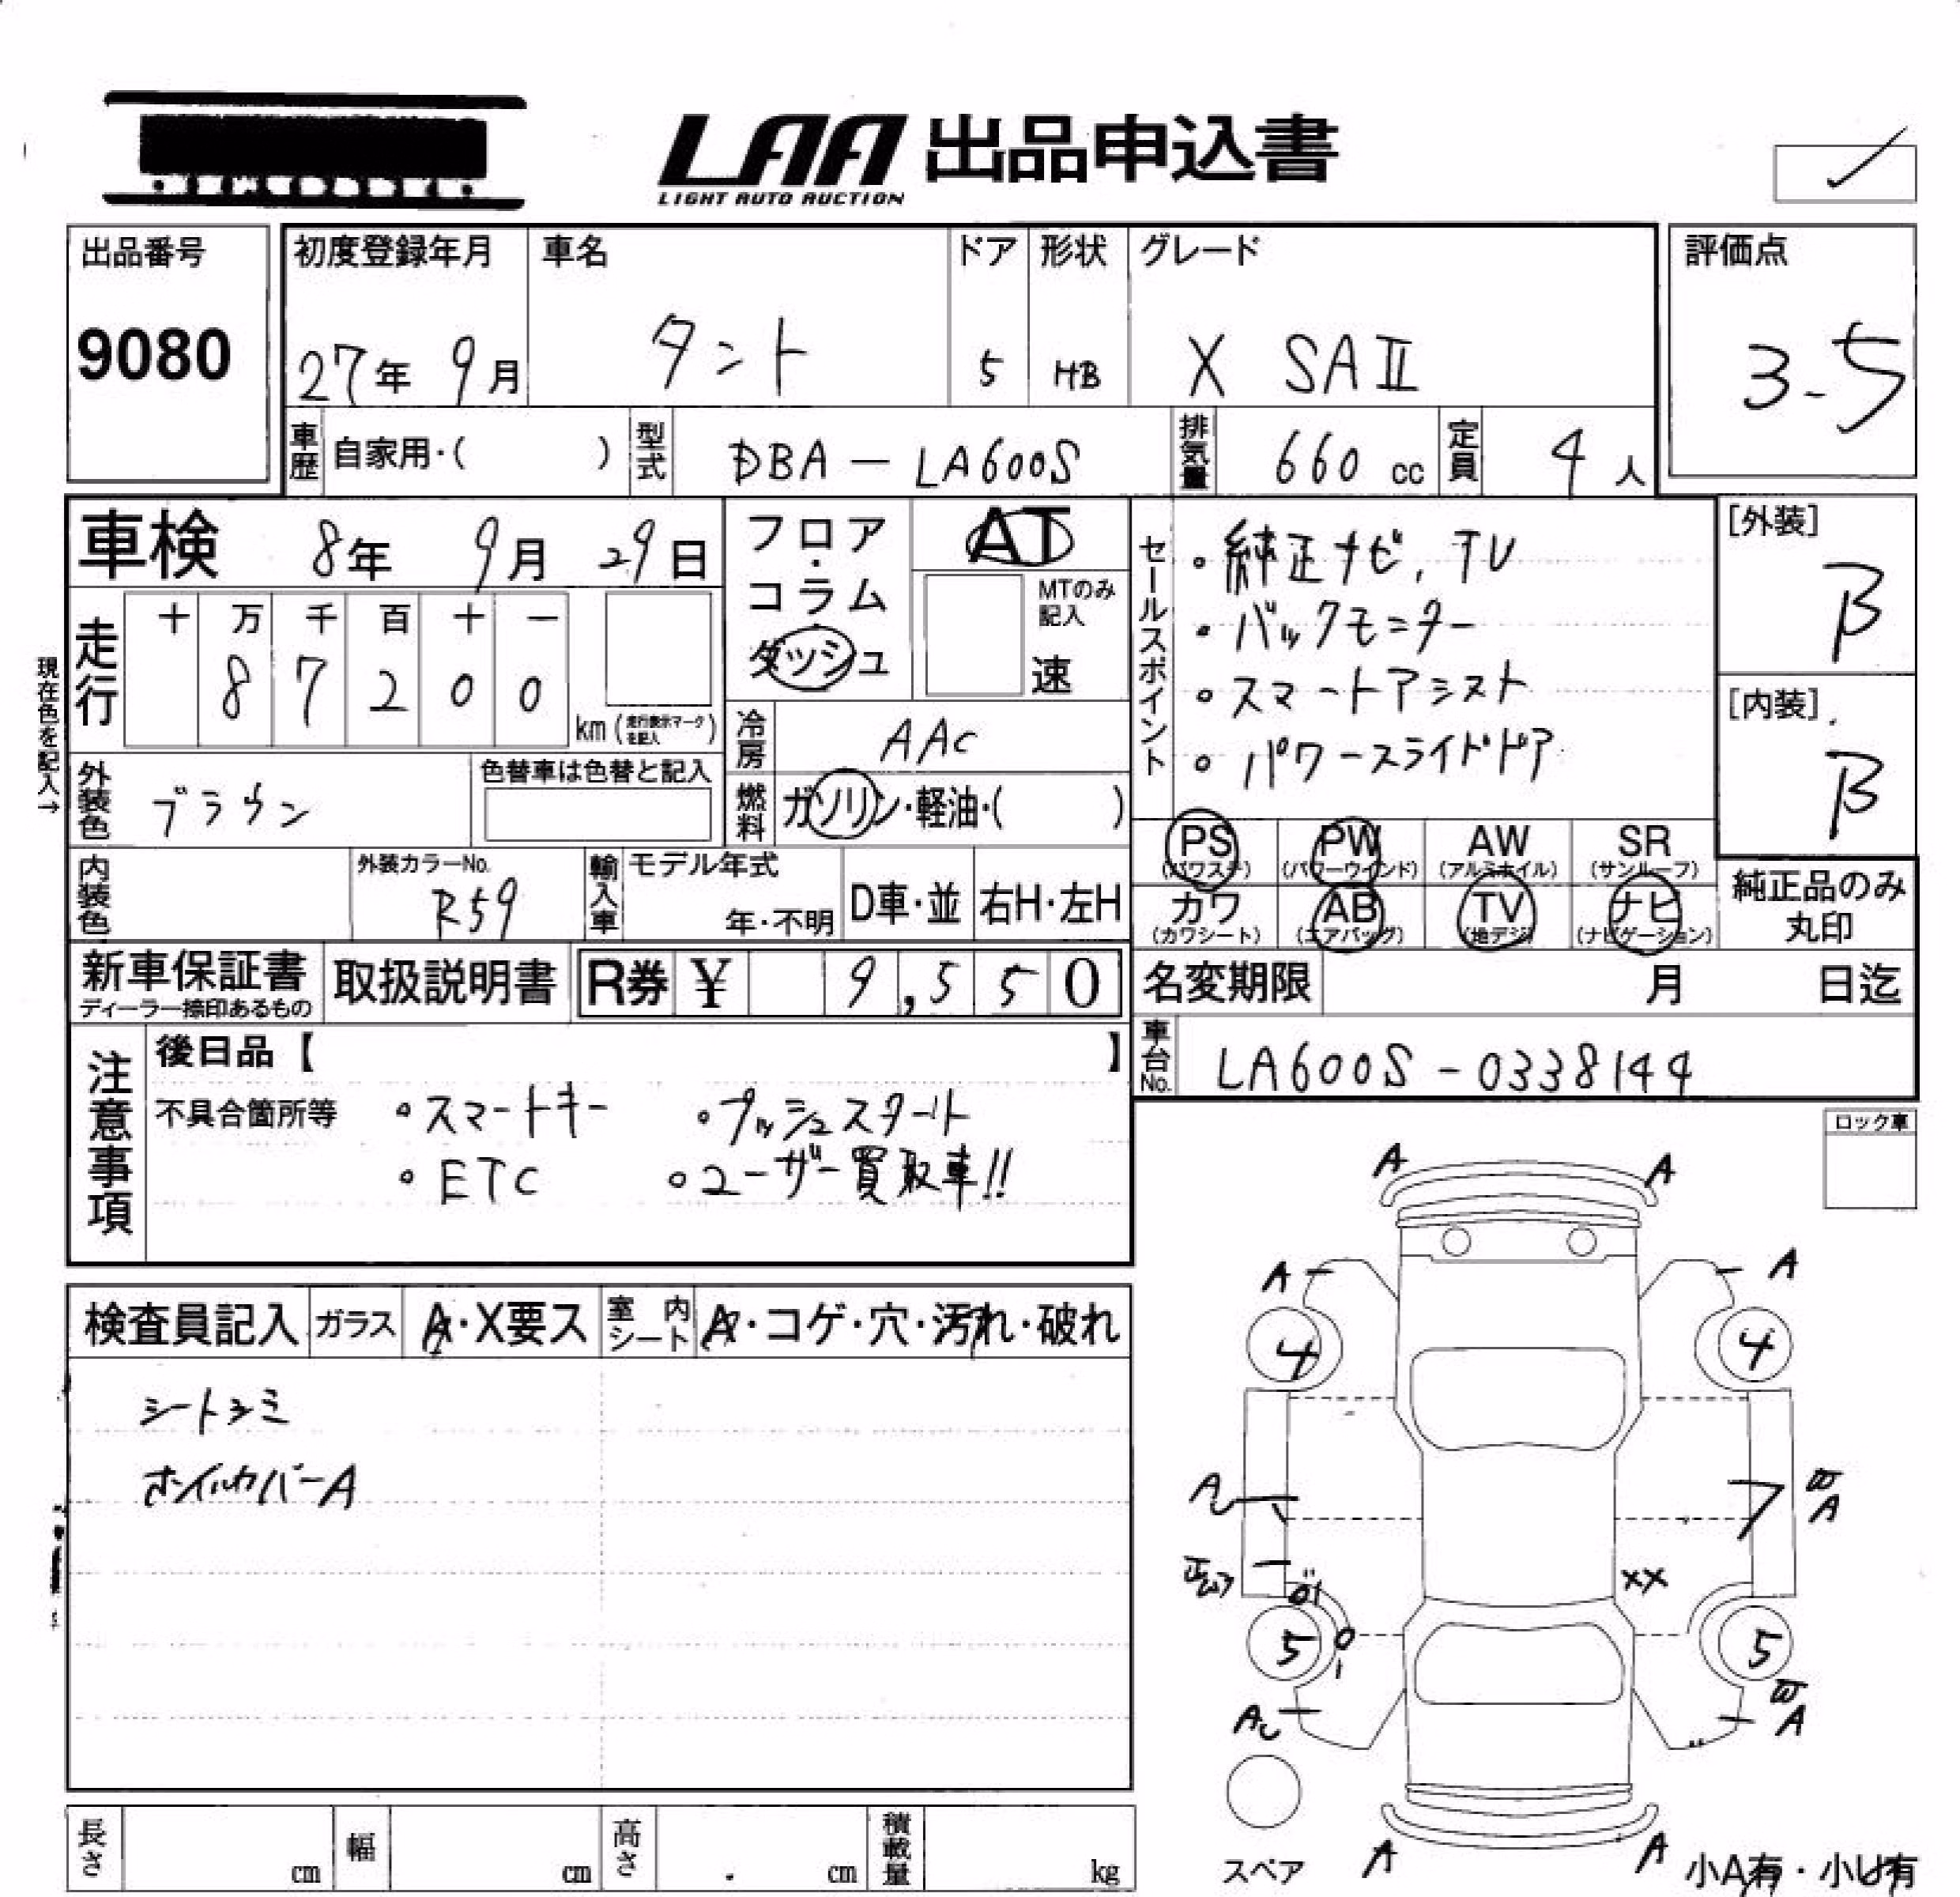 LAA 出品申込書
LIGHT AUTO AUCTION
出品番号
9080
初度登録年月
27年 9月
車名
タント
ドア
5
形状
HB
グレード
X SAⅡ
評価点
3.5
車歴 自家用・( )
型式 DBA-LA600S
排気量 660 cc
定員 4人
車検 8年 9月 29日
フロア・コラム・ダッシュ
AT
MTのみ記入
速
セールスポイント
・純正ナビ, TV
・バックモニター
・スマートアシスト
・パワースライドドア
[外装]
B
[内装]
B
現在色を記入→
走行
十 万 千 百 十 一
8 7 2 0 0
km (走行表示マークを記入)
冷房 AAC
燃料 ガソリン・軽油・( )
外装色 ブラウン
色替車は色替と記入
内装色
外装カラーNo.
R59
輸入車
モデル年式
年・不明
D車・並
右H・左H
PS (パワステ)
PW (パワーウインド)
AW (アルミホイル)
SR (サンルーフ)
カワ (カワシート)
AB (エアバッグ)
TV (地デジ)
ナビ (ナビゲーション)
純正品のみ丸印
新車保証書
ディーラー捺印あるもの
取扱説明書
R券 ¥ 9,550
名変期限 月 日迄
車台No. LA600S-0338144
注意事項
後日品【 】
不具合箇所等
・スマートキー ・プッシュスタート
・ETC ・ユーザー買取車!!
ロック車
検査員記入
ガラス A・X要ス
室内シート A・コゲ・穴・汚れ・破れ
シートシミ
ホイルカバーA
A A
A A
4 4
A
A
XX
5 5
A
A
A A
スペア
小A有・小U有
長さ cm
幅 cm
高さ cm
積載量 kg